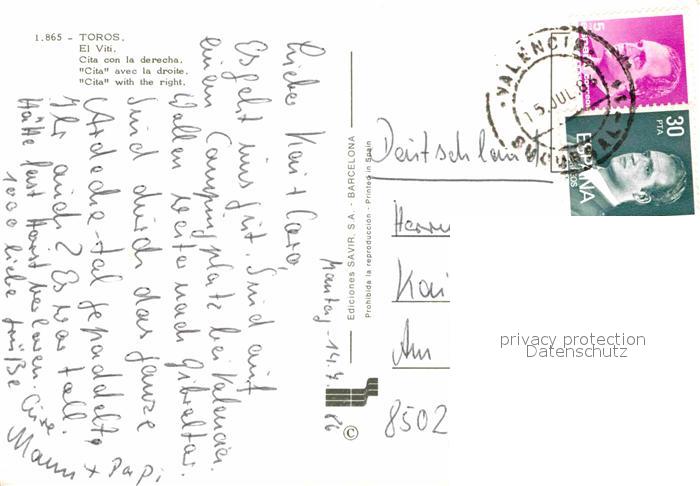 1.865 - TOROS.
El Viti.
Cita con la derecha.
"Cita" avec la droite.
"Cita" with the right.
Montag - 14.7.86
Liebe Kai + Caro,
Es geht uns gut. Sind auf
einem Campingplatz bei Valencia.
Wollen weiter nach Gibraltar.
Sind durch das ganze
Ardeche-tal gepaddelt,
Ihr auch? Es war toll.
Hätte fast Horst verloren.
1000 liebe Grüße
Mami + Papi
Ediciones SAVIR, S.A. - BARCELONA
Prohibida la reproducción - Printed in Spain
©
VALENCIA
15 JUL 86
SUCURSAL
5
30
PTA
ESPAÑA
Deutschland
Herrn
Kai
Am
8502
privacy protection
Datenschutz